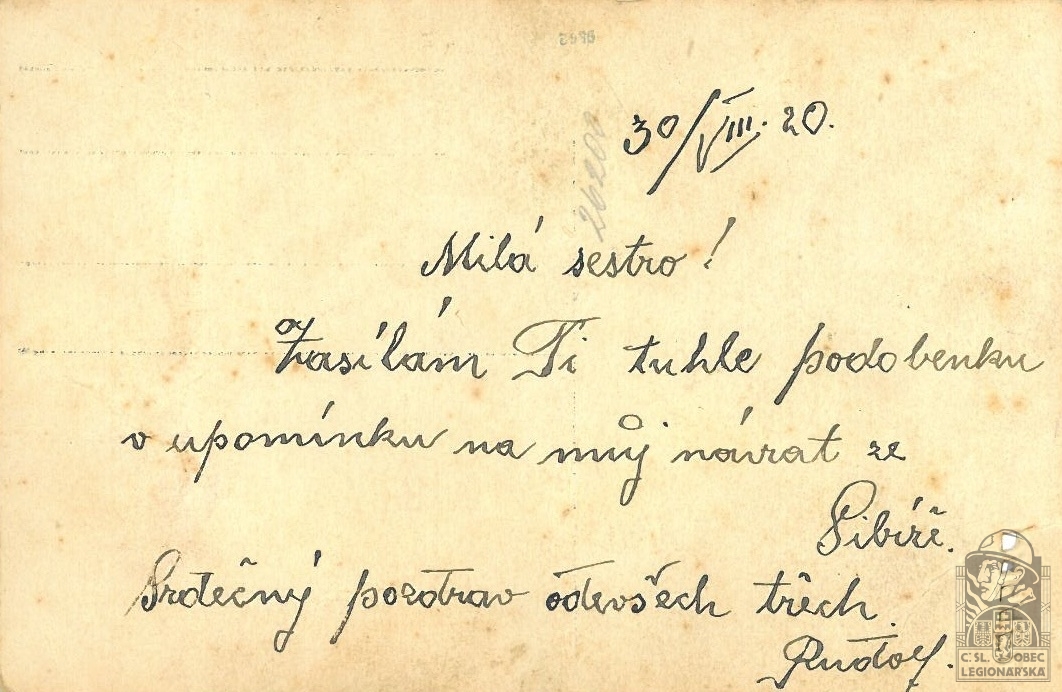 30/VIII. 20.
Milá sestro!
Zasílám Ti tuhle podobenku
v upomínku na můj návrat ze
Sibiře.
Srdečný pozdrav odevšech třech.
Rudolf.
Č. SL. OBEC
LEGIONÁŘSKÁ